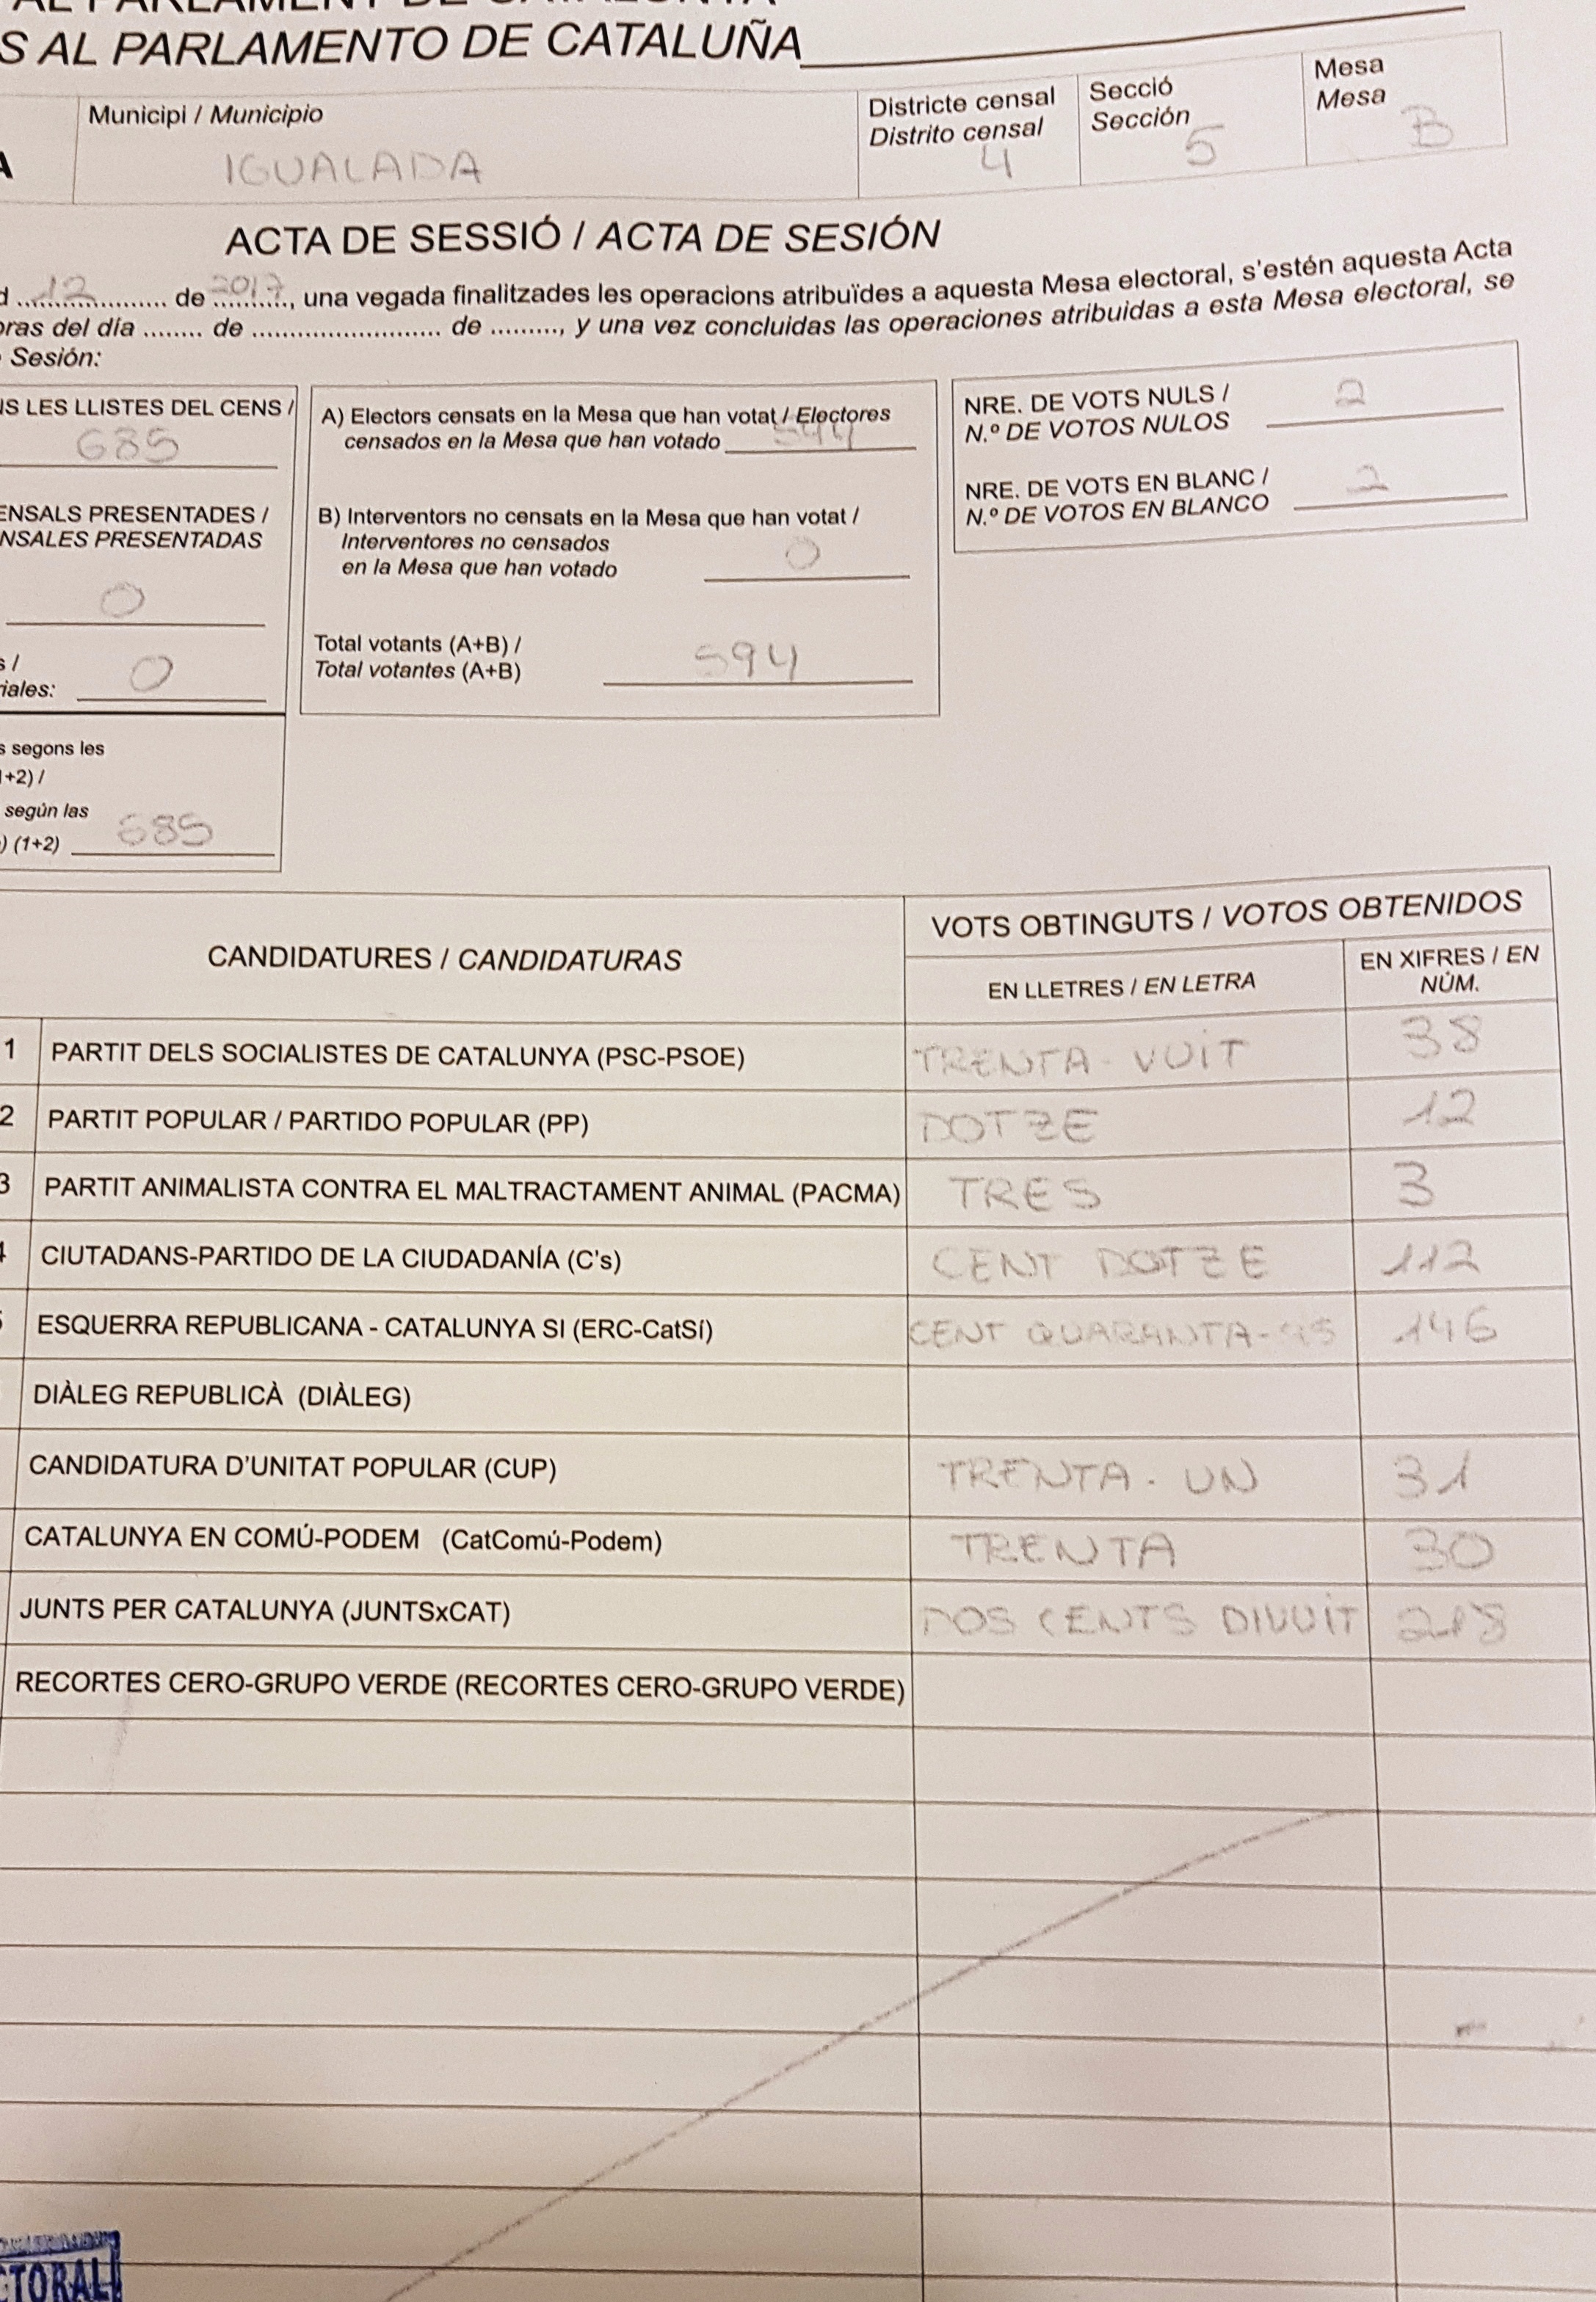 S AL PARLAMENTO DE CATALUÑA
Municipi / Municipio
IGUALADA
Districte censal
Distrito censal
4
Secció
Sección
5
Mesa
Mesa
B
ACTA DE SESSIÓ / ACTA DE SESIÓN
d 12 de 2017, una vegada finalitzades les operacions atribuïdes a aquesta Mesa electoral, s'estén aquesta Acta
oras del día ........ de ........................ de ........., y una vez concluidas las operaciones atribuidas a esta Mesa electoral, se
Sesión:
NS LES LLISTES DEL CENS /
685
ENSALS PRESENTADES /
NSALES PRESENTADAS
0
s /
riales: 0
s segons les
1+2) /
según las
) (1+2) 685
A) Electors censats en la Mesa que han votat / Electores
censados en la Mesa que han votado 594
B) Interventors no censats en la Mesa que han votat /
Interventores no censados
en la Mesa que han votado 0
Total votants (A+B) /
Total votantes (A+B) 594
NRE. DE VOTS NULS /
N.º DE VOTOS NULOS 2
NRE. DE VOTS EN BLANC /
N.º DE VOTOS EN BLANCO 2
CANDIDATURES / CANDIDATURAS
VOTS OBTINGUTS / VOTOS OBTENIDOS
EN LLETRES / EN LETRA
EN XIFRES / EN
NÚM.
1 PARTIT DELS SOCIALISTES DE CATALUNYA (PSC-PSOE) TRENTA-VUIT 38
2 PARTIT POPULAR / PARTIDO POPULAR (PP) DOTZE 12
3 PARTIT ANIMALISTA CONTRA EL MALTRACTAMENT ANIMAL (PACMA) TRES 3
4 CIUTADANS-PARTIDO DE LA CIUDADANÍA (C's) CENT DOTZE 112
ESQUERRA REPUBLICANA - CATALUNYA SI (ERC-CatSí) CENT QUARANTA-SIS 146
DIÀLEG REPUBLICÀ (DIÀLEG)
CANDIDATURA D'UNITAT POPULAR (CUP) TRENTA-UN 31
CATALUNYA EN COMÚ-PODEM (CatComú-Podem) TRENTA 30
JUNTS PER CATALUNYA (JUNTSxCAT) DOS CENTS DIVUIT 218
RECORTES CERO-GRUPO VERDE (RECORTES CERO-GRUPO VERDE)
CTORAL